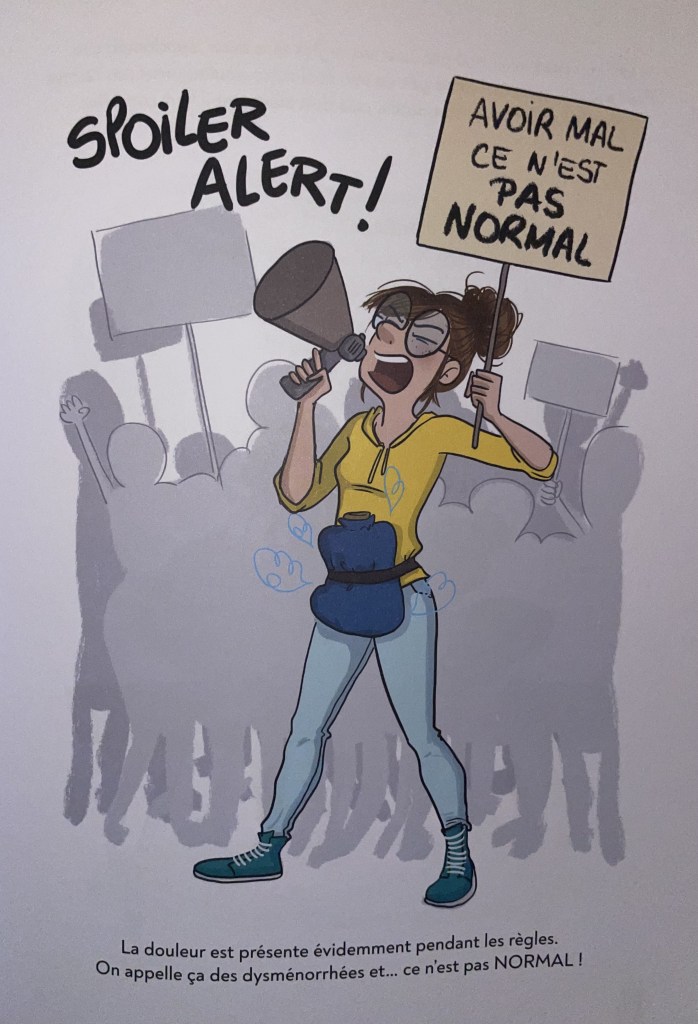 SPOILER
ALERT!
AVOIR MAL
CE N'EST
PAS
NORMAL
La douleur est présente évidemment pendant les règles.
On appelle ça des dysménorrhées et... ce n'est pas NORMAL !